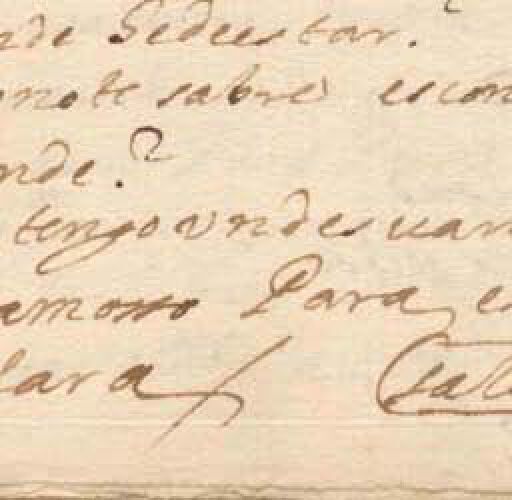 nde Sedeestar.
no te sabre escon
nde?
tengo vn desuan
amosso Para e
lara
(sale